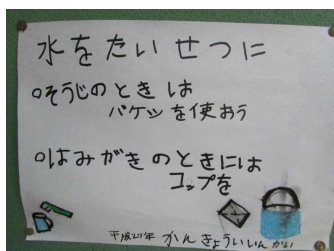 水をたいせつに
○そうじのときは
バケツを使おう
○はみがきのときには
コップを
平成21年 かんきょういいんかい